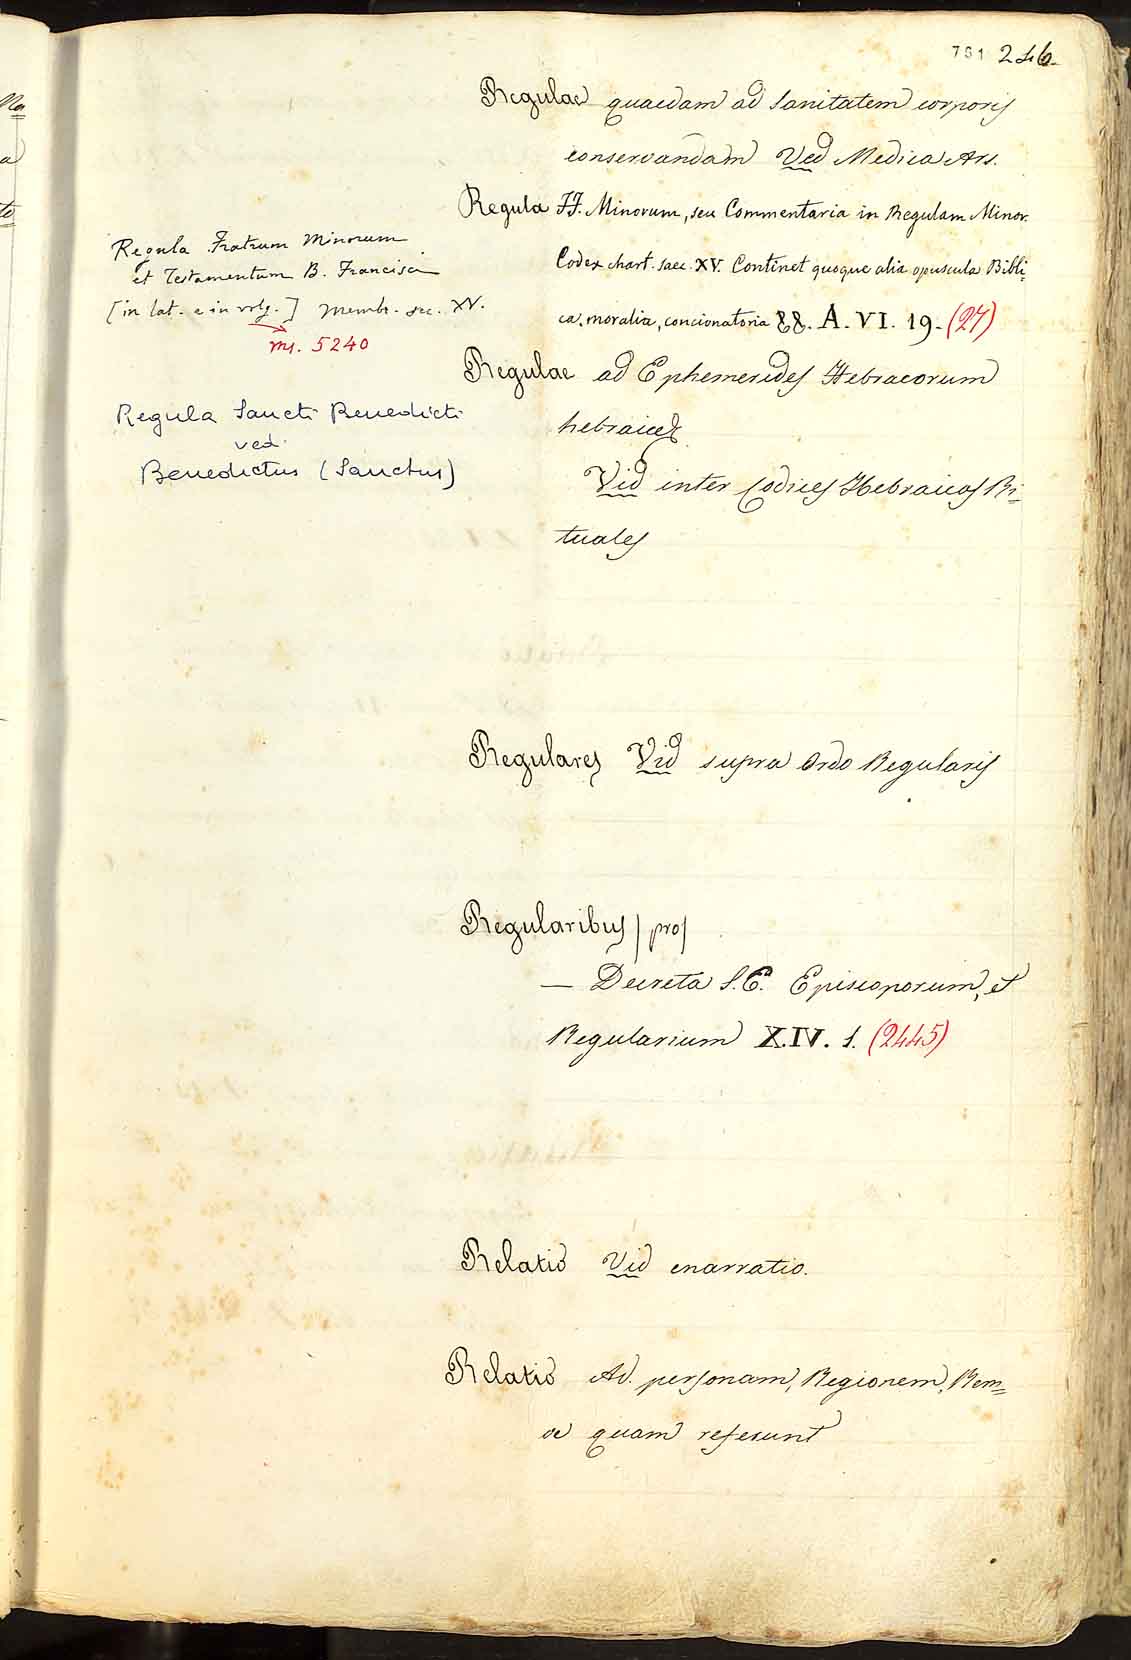 781 246.
Regulae quaedam ad Sanitatem corporis
conservandam Ved Medica Ars.
Regula FF. Minorum, seu Commentaria in Regulam Minor.
Codex chart. saec. XV. Continet quoque alia opuscula Bibli=
ca, moralia, concionatoria &&. A. VI. 19. (27)
Regula Fratrum Minorum
et Testamentum B. Francisci
[in lat. e in volg.] membr. sec. XV.
ms. 5240
Regulae ad Ephemerides Hebraeorum
hebraice
Regula Sancti Benedicti
ved.
Benedictus (Sanctus)
Vid inter Codices Hebraicos Ri=
tuales
Regulares Vid supra Ordo Regularis
Regularibus / pro /
— Decreta S. C. Episcoporum, et
Regularium X.IV. 1. (2445)
Relatio Vid enarratio.
Relatio Ad. personam, Regionem, Rem=
ve quam referunt